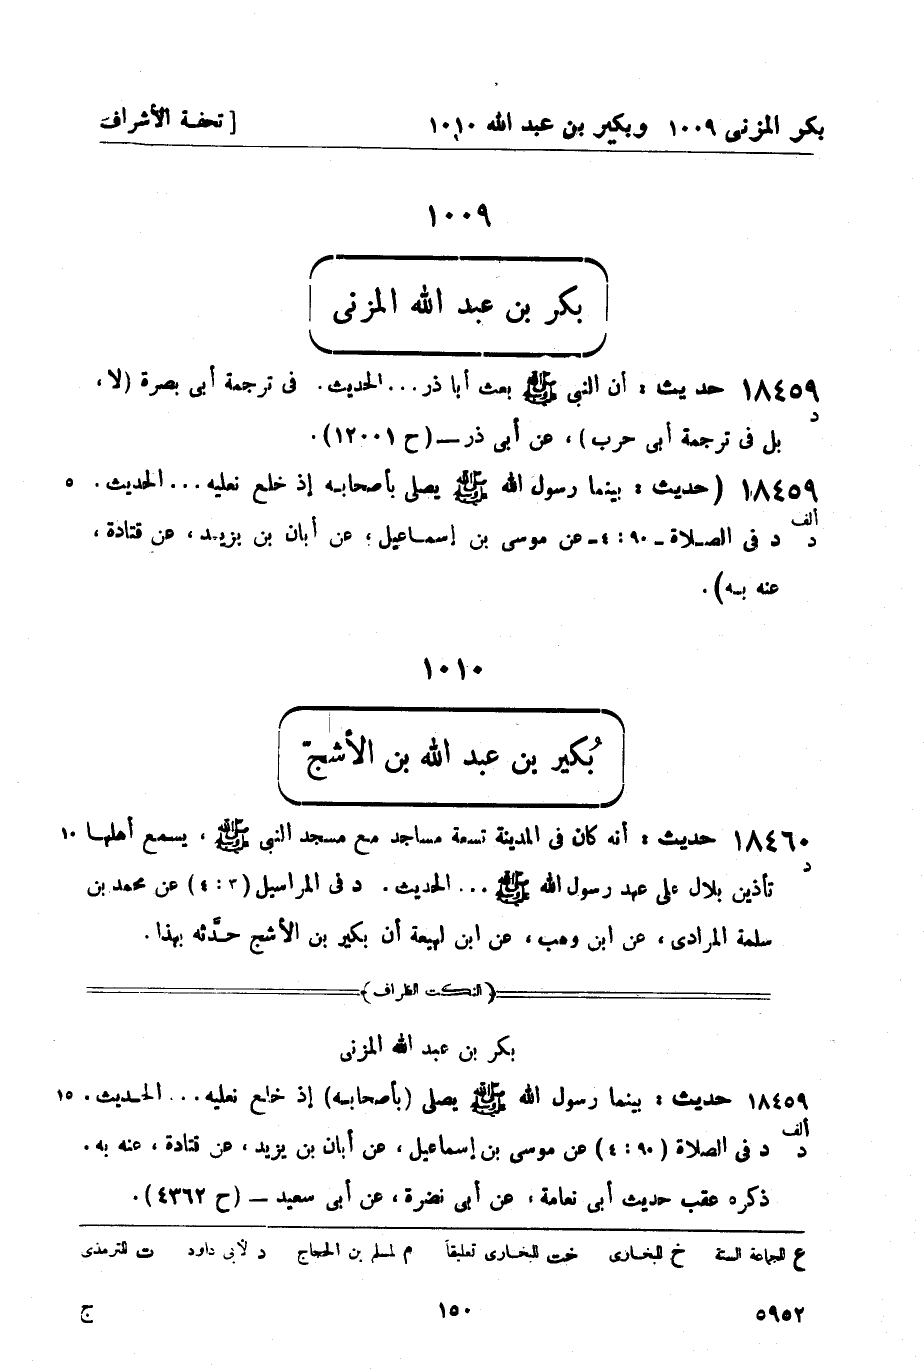 بكر المزنى ١٠٠٩ وبكير بن عبد الله ١٠١٠ [ تحفة الأشراف
١٠٠٩
بكر بن عبد الله المزنى
١٨٤٥٩ حديث : أن النبي ﷺ بعث أبا ذر ... الحديث . فى ترجمة أبى بصرة (لا ،
د
بل فى ترجمة أبى حرب) ، عن أبى ذر — (ح ١٢٠٠١) .
١٨٤٥٩ (حديث : بينما رسول الله ﷺ يصلى بأصحابه إذ خلع نعليه ... الحديث . ٥
ألف
د د فى الصلاة ـ ٩٠ : ٤ ـ عن موسى بن إسماعيل ، عن أبان بن يزيد ، عن قتادة ،
عنه به) .
١٠١٠
بُكير بن عبد الله بن الأشجّ
١٨٤٦٠ حديث : أنه كان فى المدينة تسعة مساجد مع مسجد النبى ﷺ ، يسمع أهلها ١٠
د
تأذين بلال على عهد رسول الله ﷺ ... الحديث . د فى المراسيل (٣ : ٤) عن محمد بن
سلمة المرادى ، عن ابن وهب ، عن ابن لهيعة أن بكير بن الأشج حدَّثه بهذا .
(النكت الظراف)
بكر بن عبد الله المزنى
١٨٤٥٩ حديث : بينما رسول الله ﷺ يصلى (بأصحابه) إذ خلع نعليه ... الحديث . ١٥
ألف
د د فى الصلاة (٩٠ : ٤) عن موسى بن إسماعيل ، عن أبان بن يزيد ، عن قتادة ، عنه به .
ذكره عقب حديث أبى نعامة ، عن أبى نضرة ، عن أبى سعيد — (ح ٤٣٦٢) .
ع للجماعة الستة خ للبخارى خت للبخارى تعليقاً م لمسلم بن الحجاج د لأبى داود ت للترمذى
٥٩٥٢ ١٥٠ ج